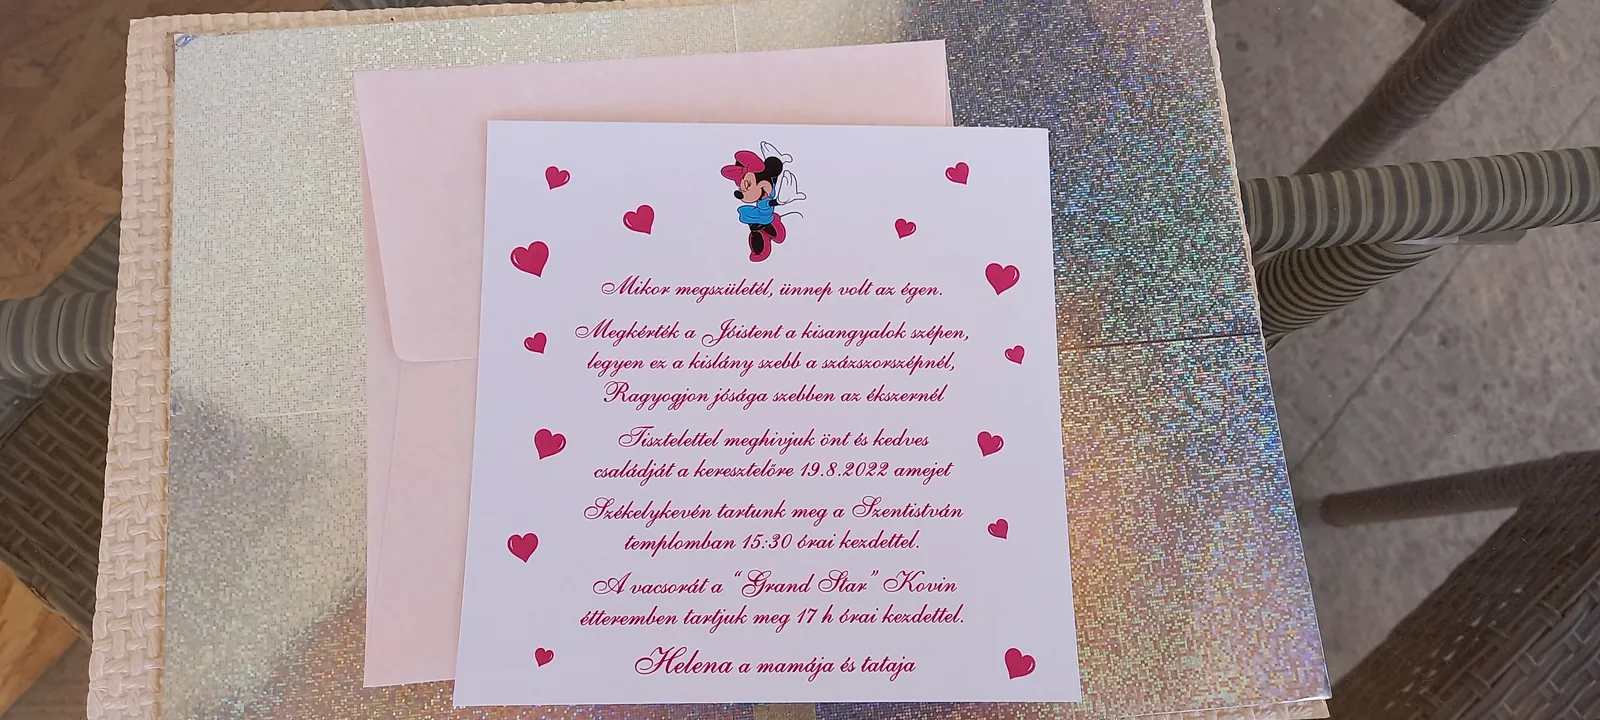 Mikor megszületél, ünnep volt az égen.
Megkérték a Jóistent a kisangyalok szépen,
legyen ez a kislány szebb a százszorszépnél,
Ragyogjon jósága szebben az ékszernél
Tisztelettel meghivjuk önt és kedves
családját a keresztelőre 19.8.2022 amejet
Székelykevén tartunk meg a Szentistván
templomban 15:30 órai kezdettel.
A vacsorát a “Grand Star” Kovin
étteremben tartjuk meg 17 h órai kezdettel.
Helena a mamája és tataja